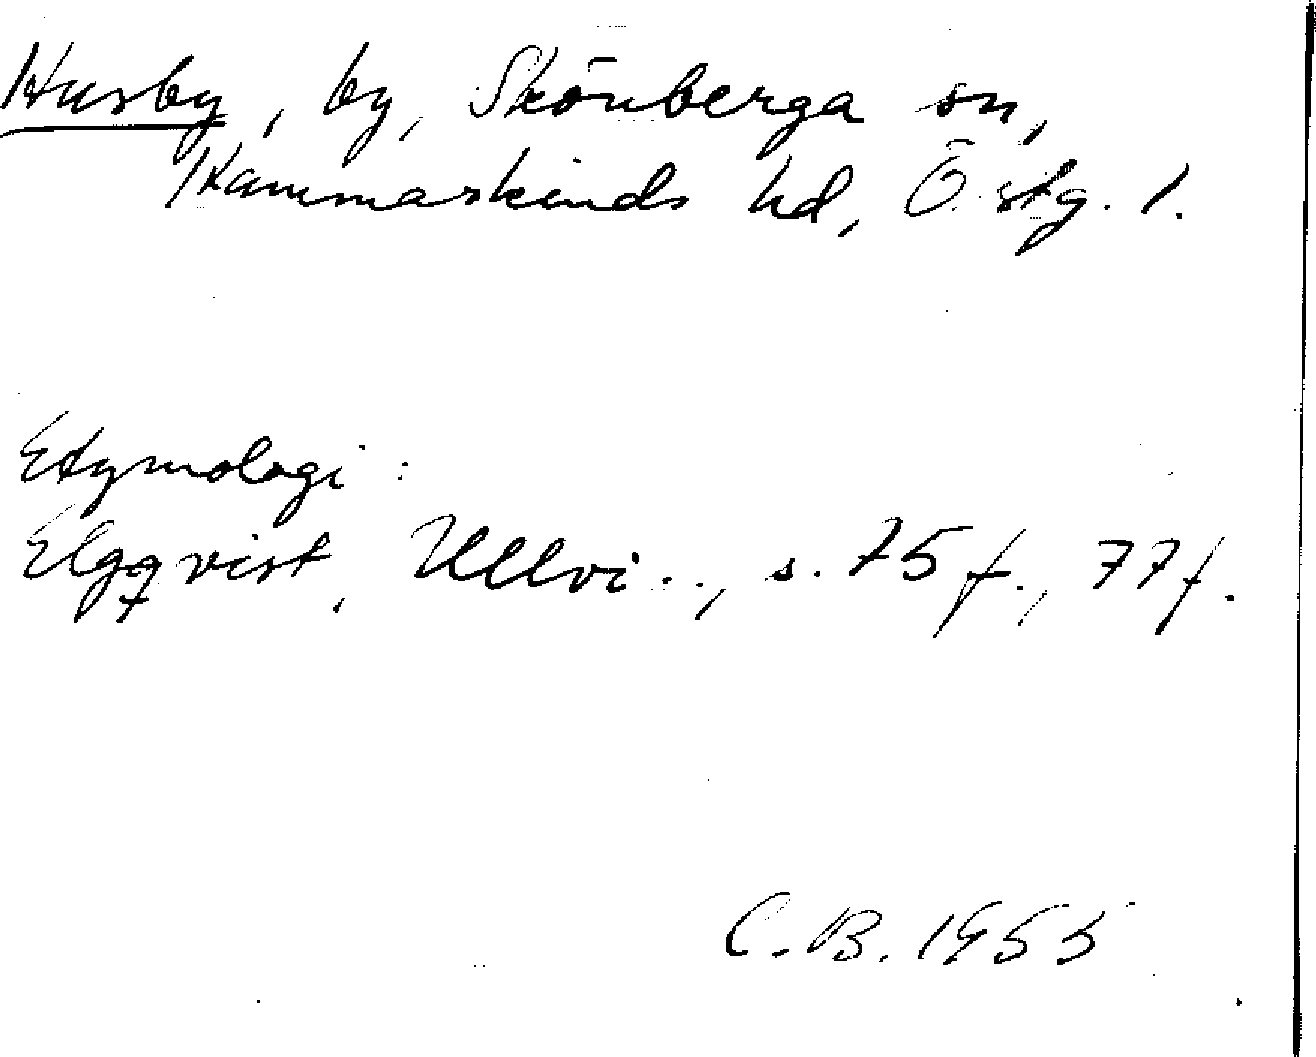 Husby, by, Skönberga sn,
Hammarkinds hd, Östg. l.
Etymologi:
Elgqvist, Ullvi.., s. 75 f., 77 f.
C.B. 1955